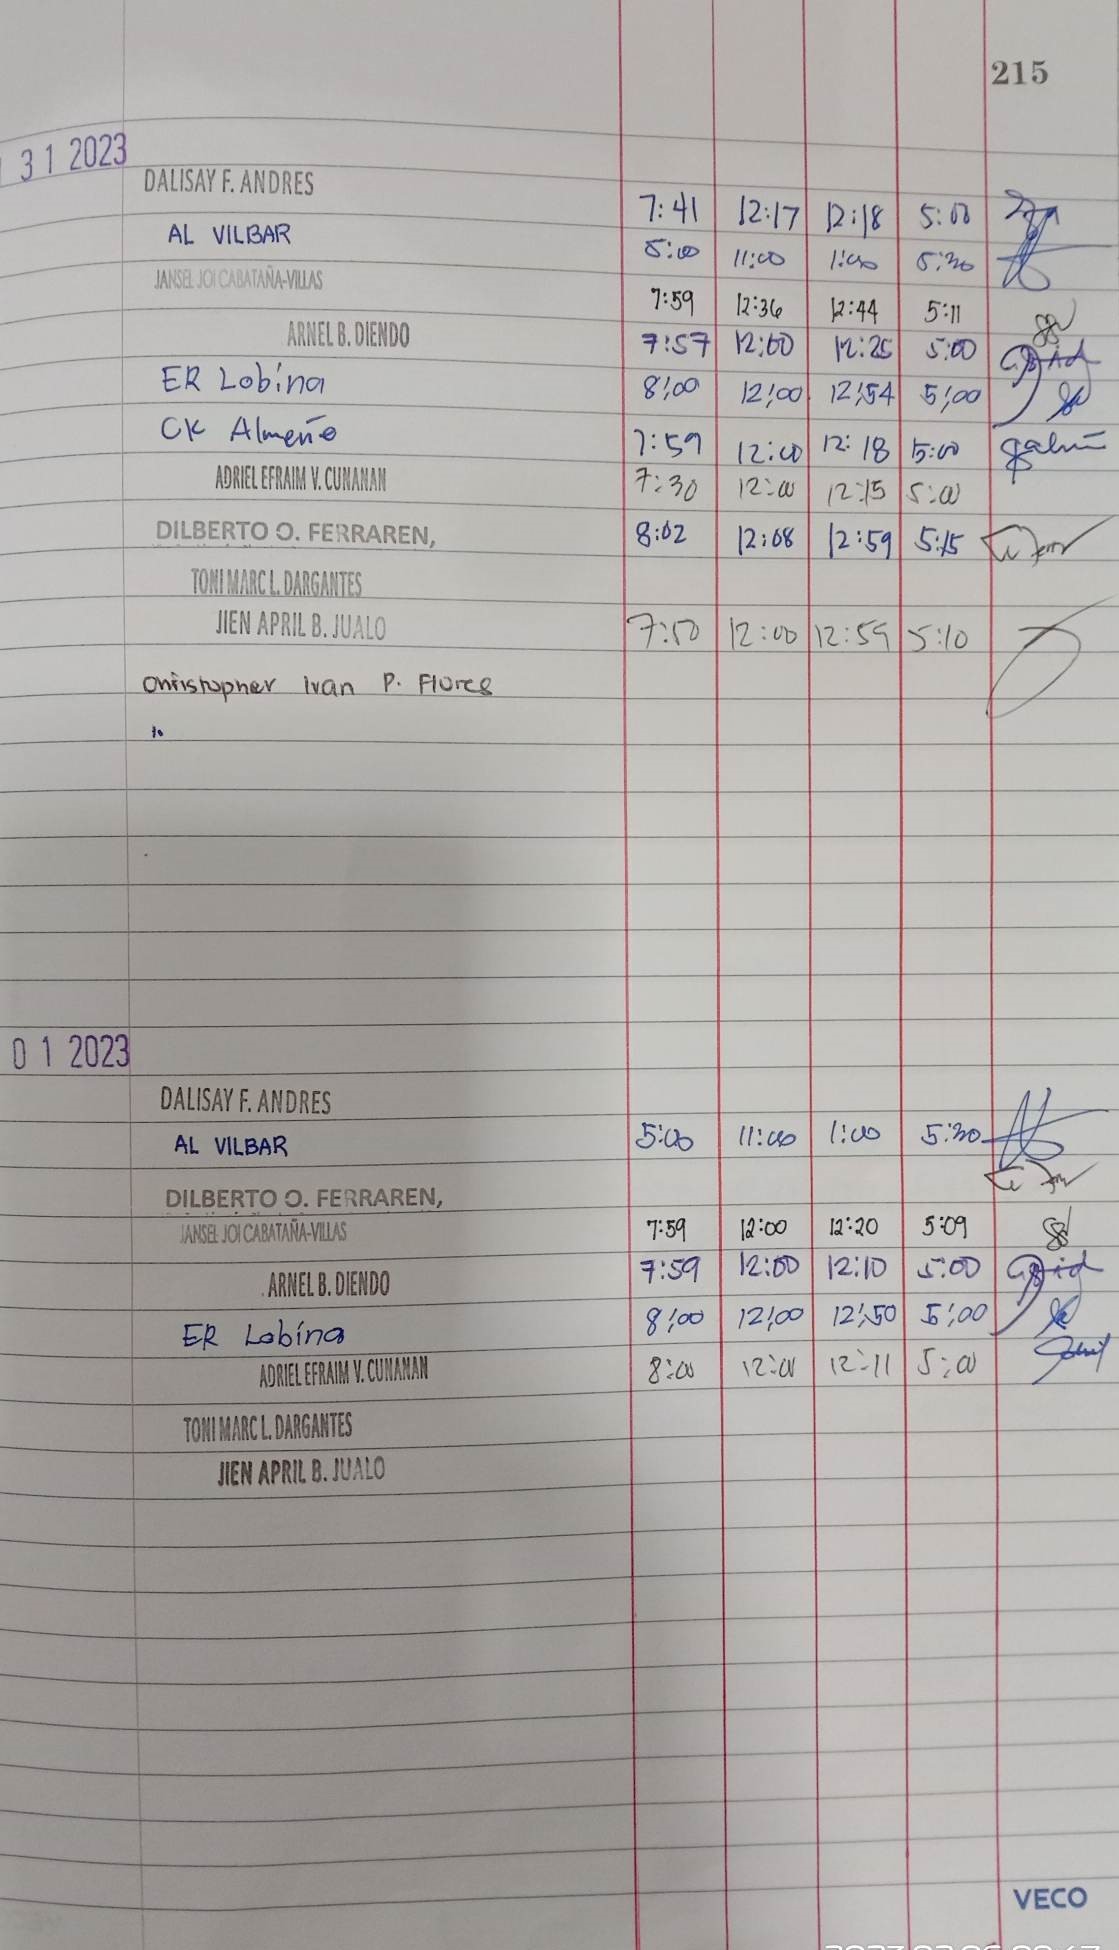 215
31 2023
DALISAY F. ANDRES 7:41 12:17 12:18 5:00
AL VILBAR 5:00 11:00 1:00 5:30
JANSEL JOI CABATAÑA-VILLAS 7:59 12:36 12:44 5:11
ARNEL B. DIENDO 7:57 12:00 12:25 5:00
ER Lobina 8:00 12:00 12:54 5:00
CK Almeñe 7:59 12:00 12:18 5:00
ADRIEL EFRAIM V. CUNANAN 7:30 12:00 12:15 5:00
DILBERTO O. FERRAREN, 8:02 12:08 12:59 5:15
TONI MARC L. DARGANTES
JIEN APRIL B. JUALO 7:50 12:00 12:59 5:10
Christopher Ivan P. Flores
10
01 2023
DALISAY F. ANDRES
AL VILBAR 5:00 11:00 1:00 5:30
DILBERTO O. FERRAREN,
JANSEL JOI CABATAÑA-VILLAS 7:59 12:00 12:20 5:09
ARNEL B. DIENDO 7:59 12:00 12:10 5:00
ER Lobina 8:00 12:00 12:50 5:00
ADRIEL EFRAIM V. CUNANAN 8:00 12:01 12:11 5:00
TONI MARC L. DARGANTES
JIEN APRIL B. JUALO
VECO